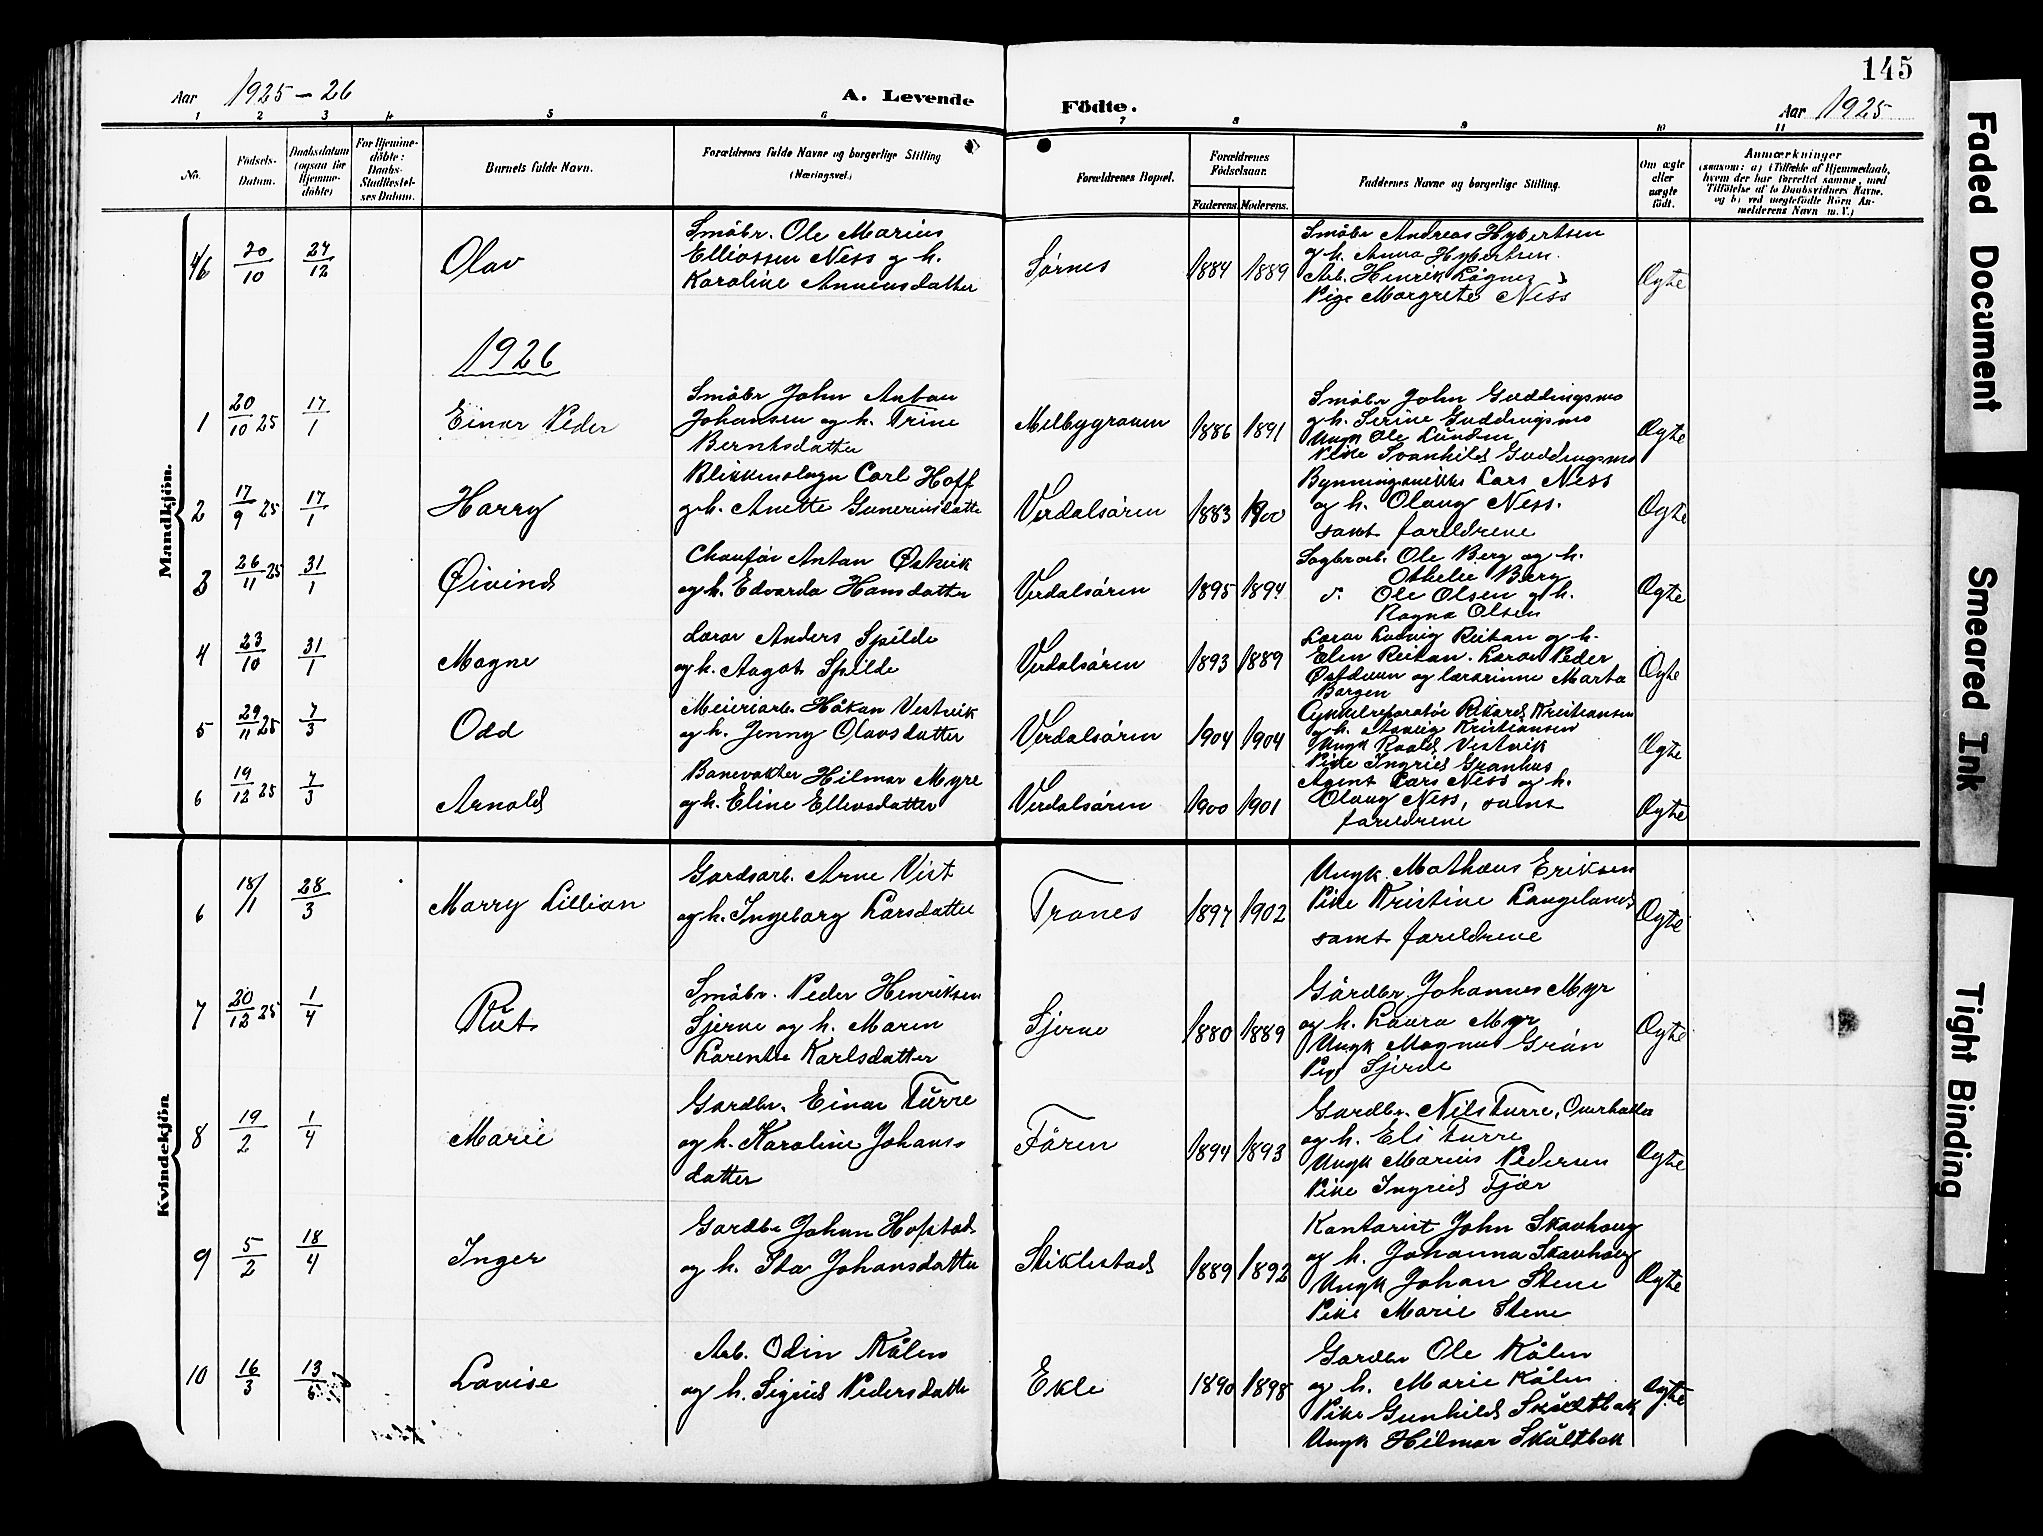 145
Aar 1925-26 A. Levende Födte. Aar 1925
1 2 3 4 5 6 7 8 9 10 11
No. Födsels-Datum. Daabsdatum (ogsaa for Hjemme-döbte) For Hjemme-döbte: Daabs-Stadfæstel-ses Datum. Barnets fulde Navn. Forældrenes fulde Navne og borgerlige Stilling (Næringsvei.) Forældrenes Bopæl. Forældrenes Födselsaar. Faderens. Moderens. Faddernes Navne og borgerlige Stilling. Om ægte eller uægte födt. Anmærkninger
(saasom: a) i Tilfælde af Hjemmedaab, hvem der har forrettet samme, med Tilföielse af to Daabsvidners Navne, og b) ved uægtefödte Börn An-melderens Navn m. V.)
Mandkjön.
46 20/10 27/12 Olav
Småbr. Ole Marius
Elliassen Ness og h.
Karoline Annensdatter
Sørnes 1884 1889
Småbr Andreas Hybertsen
og h. Anna Hybertsen.
Arb. Henrik
Pige Margrete Ness
Ægte
1926
1 20/10 25 17/1 Einar Peder
Småbr John Anton
Johansen og h. Trine
Berntsdatter
Melbygraven 1886 1891
Småbr John Guddingsmo
og h. Serine Guddingsmo
Ungk Ole Lunden
Pike Svanhild Guddingsmo
Ægte
2 17/9 25 17/1 Harry
Carl Hoff
og h. Anette Guneriusdatte
Verdalsøren 1883 1900
Lars Ness
og h. Olaug Ness.
samt foreldrene
Ægte
3 26/11 25 31/1 Øivind
Chaufør Anton Østvik
og h. Edvarda Hansdatter
Verdalsøren 1895 1894
Sagbrarb. Ole Berg og h.
Othelie Berg
d. Ole Olsen og h.
Ragna Olsen
Ægte
4 23/10 31/1 Magne
Lærer Anders Spilde
og h. Aagot Spilde
Verdalsøren 1893 1889
Lærer Ludvig Reitan og h.
Elen Reitan. Lærer Peder
og lærerinne Marta
Borgen
Ægte
5 29/11 25 7/3 Odd
Meieriarb. Håkon Vestvik
og h. Jenny Olavsdatter
Verdalsøren 1904 1904
Cykkelreparatør Rikard Kristiansen
og h. Kristiansen
Ungk Roald Vestvik
Pike Ingrid Granhus
Ægte
6 19/12 25 7/3 Arnold
Banevokter Hilmar Myre
og h. Eline Ellevsdatter
Verdalsøren 1900 1901
Agent Lars Ness og h.
Olaug Ness, samt
foreldrene
Ægte
Kvindekjön
6 18/1 28/3 Marry Lillian
Gardsarb. Arne Vist
og h. Ingeborg Larsdatter
Trones 1897 1902
Ungk. Mathæus Eriksen
Pike Kristine Langeland
samt foreldrene
Ægte
7 20/12 25 1/4 Rut
Småbr. Peder Henriksen
Gjerne og h. Maren
Larentse Karlsdatter
Gjerne 1880 1889
Gårdbr Johannes Myr
og h. Laura Myr
Ungk Magnus Grøn
Ægte
8 19/2 1/4 Marie
Gardbr. Einar Turre
og h. Karoline Johans-
datter
Føren 1894 1893
Gardbr. Nils Turre, Overholla
og h. Eli Turre
Ungk Marius Pedersen
Pike Ingrid Fjær
Ægte
9 5/2 18/4 Inger
Gardbr Johan Hofstad
og h. Ida Johansdatter
Stiklestad 1889 1892
Kontorist John Skavhaug
og h. Johanna Skavhaug
Ungk Johan Stene
Pike Marie Stene
Ægte
10 16/3 13/6 Lovise
Arb. Odin Kålen
og h. Sigrid Pedersdatte
Ekle 1890 1898
Gardbr Ole Kålen
og h. Marie Kålen
Pike Gunhild
Ungk Hilmar
Ægte
Faded Document
Smeared Ink
Tight Binding